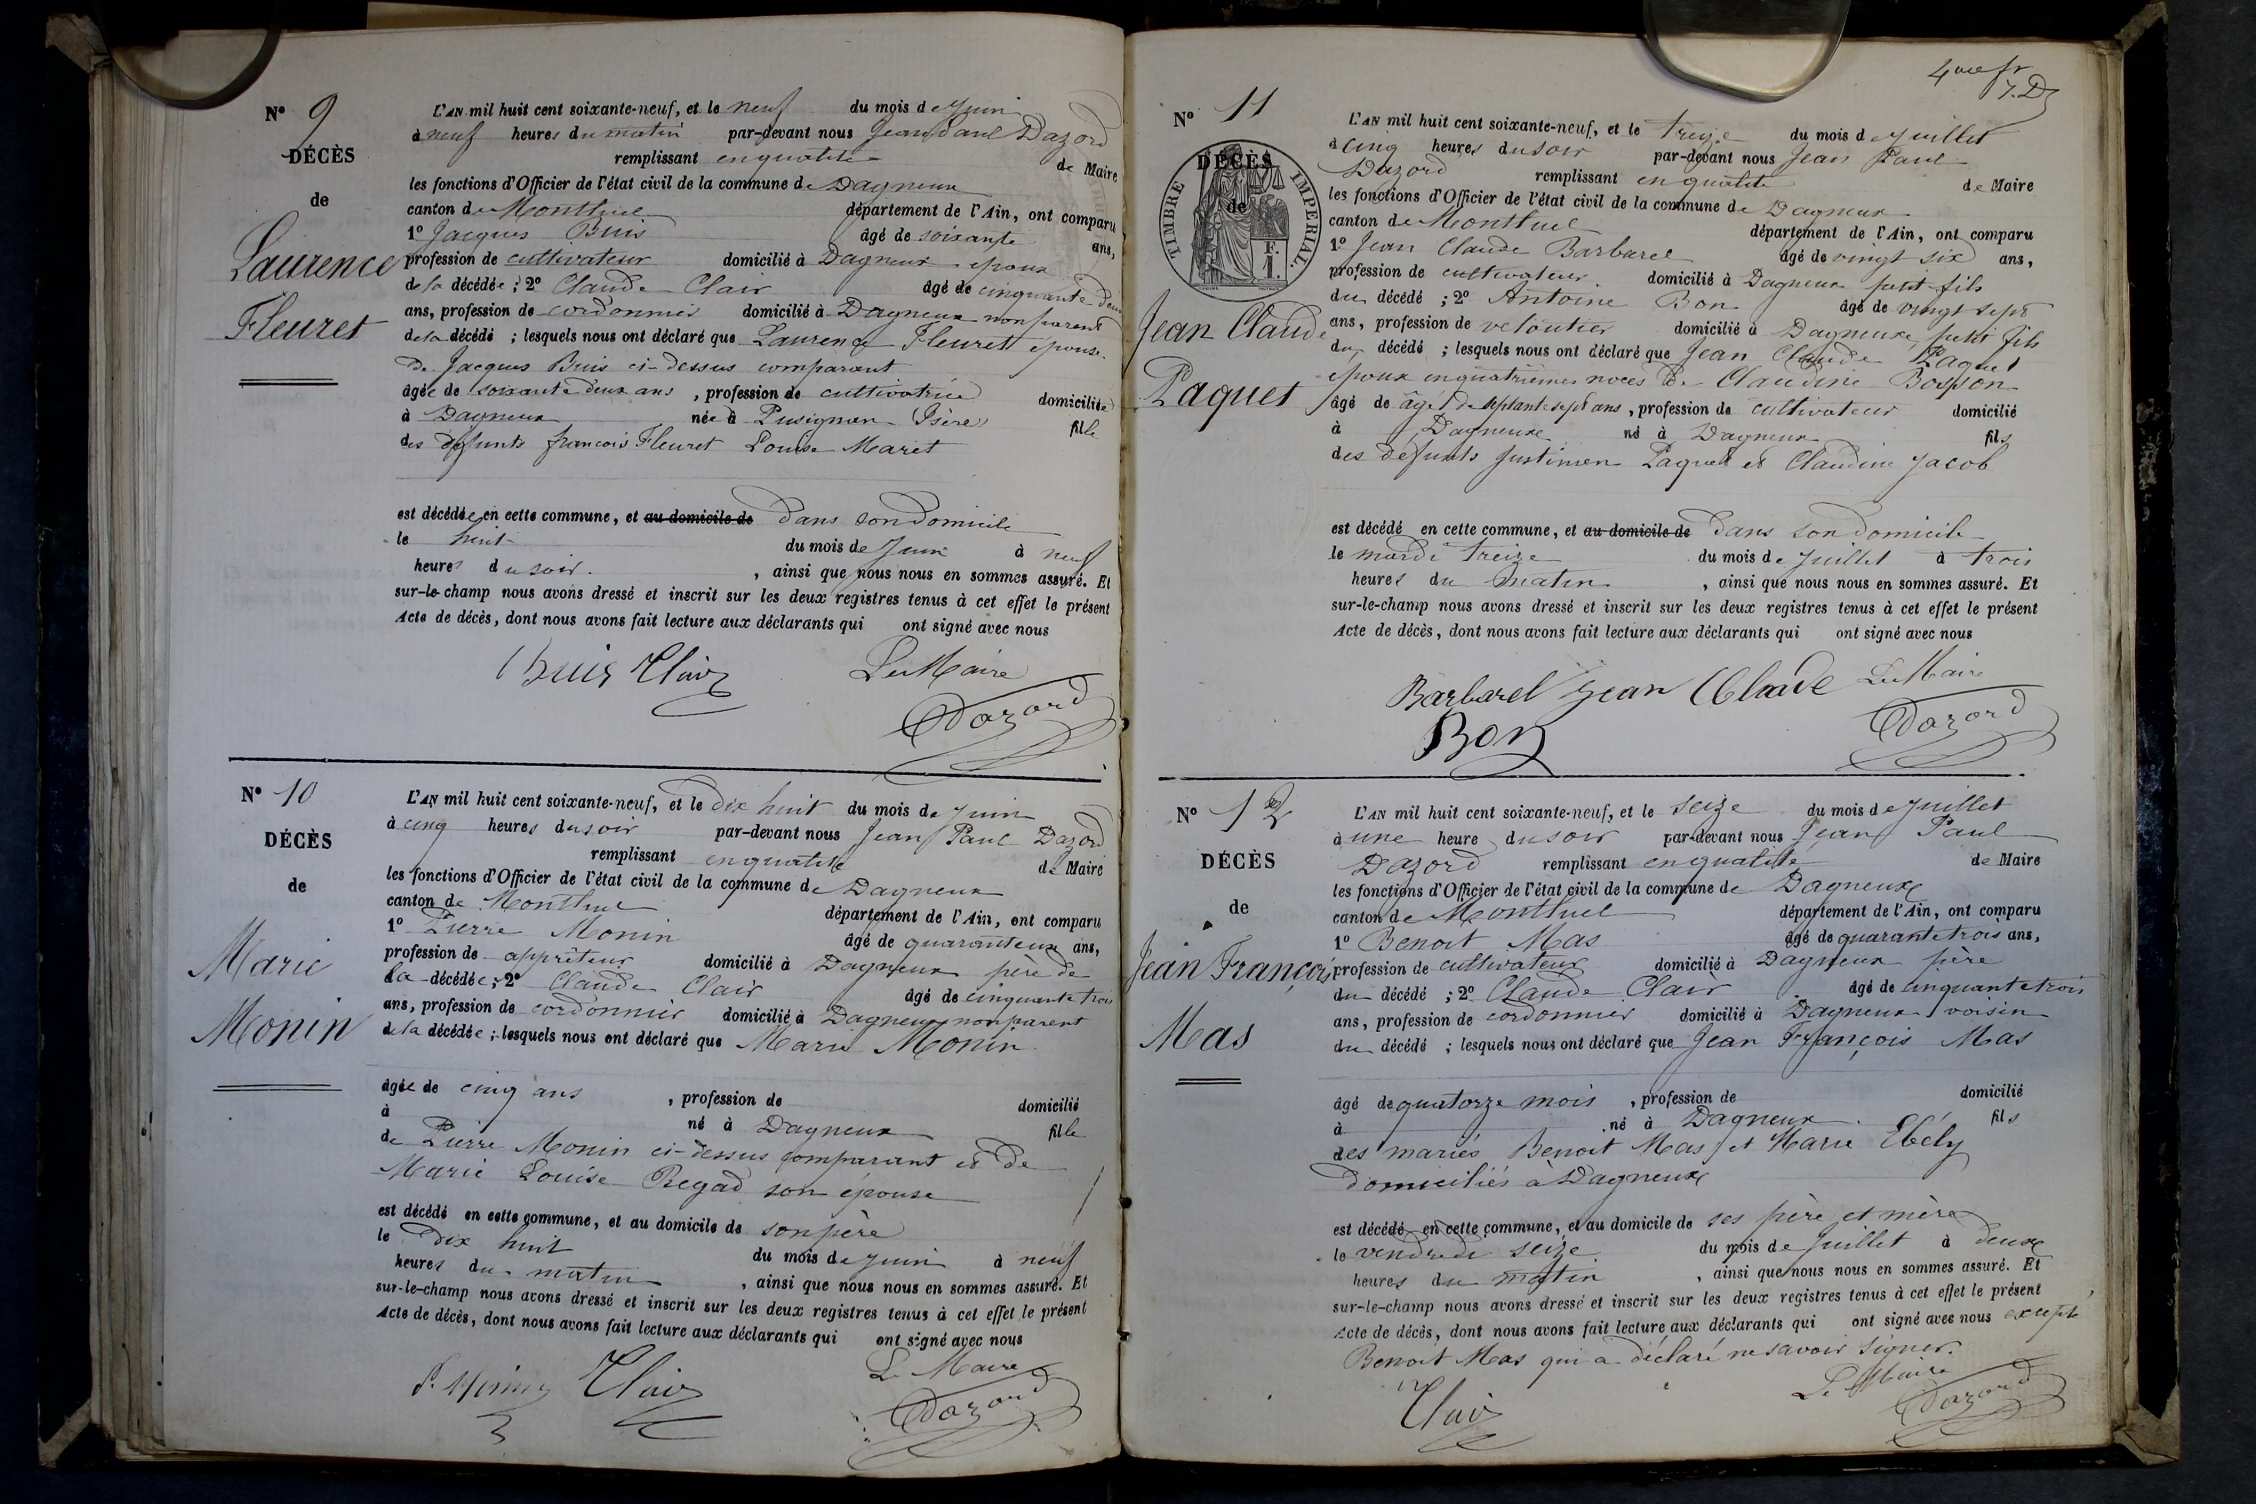 Nº 9
DÉCÈS
de
Laurence
Fleuret
L'AN mil huit cent soixante-neuf, et le neuf du mois de juin
à neuf heures du matin par-devant nous Jean Paul Dazord
remplissant en qualité de Maire
les fonctions d'Officier de l'état civil de la commune de Dagneux
canton de Montluel département de l'Ain, ont comparu
1º Jacques Buis âgé de soixante ans,
profession de cultivateur domicilié à Dagneux époux
de la décédée ; 2º Claude Clair âgé de cinquante deux
ans, profession de cordonnier domicilié à Dagneux non parent
de la décédé ; lesquels nous ont déclaré que Laurence Fleuret épouse
de Jacques Buis ci-dessus comparant
âgée de soixante deux ans, profession de cultivatrice domiciliée
à Dagneux née à Pusignan (Isère) fille
des défunts françois Fleuret Louise Maret
est décédée en cette commune, et au domicile de dans son domicile
le huit du mois de Juin à neuf
heures du soir, ainsi que nous nous en sommes assuré. Et
sur-le-champ nous avons dressé et inscrit sur les deux registres tenus à cet effet le présent
Acte de décès, dont nous avons fait lecture aux déclarants qui ont signé avec nous
Buis Clair Le Maire
Dazord
Nº 10
DÉCÈS
de
Marie
Monin
L'AN mil huit cent soixante-neuf, et le dix huit du mois de juin
à cinq heures du soir par-devant nous Jean Paul Dazord
remplissant en qualité de Maire
les fonctions d'Officier de l'état civil de la commune de Dagneux
canton de Montluel département de l'Ain, ont comparu
1º Pierre Monin âgé de quarante un ans,
profession de apprêteur domicilié à Dagneux père de
la décédée ; 2º Claude Clair âgé de cinquante trois
ans, profession de cordonnier domicilié à Dagneux non parent
de la décédée ; lesquels nous ont déclaré que Marie Monin
âgée de cinq ans, profession de domicilié
à né à Dagneux fille
de Pierre Monin ci-dessus comparant et de
Marie Louise Regad son épouse
est décédé en cette commune, et au domicile de son père
le dix huit du mois de juin à neuf
heures du matin, ainsi que nous nous en sommes assuré. Et
sur-le-champ nous avons dressé et inscrit sur les deux registres tenus à cet effet le présent
Acte de décès, dont nous avons fait lecture aux déclarants qui ont signé avec nous
P. Monin Clair Le Maire
Dazord
4me fr
J. Dz
Nº 11
DÉCÈS
de
TIMBRE IMPERIAL.
F.
1.
Jean Claude
Paquet
L'AN mil huit cent soixante-neuf, et le treize du mois de Juillet
à cinq heures du soir par-devant nous Jean Paul
Dazord remplissant en qualité de Maire
les fonctions d'Officier de l'état civil de la commune de Dagneux
canton de Montluel département de l'Ain, ont comparu
1º Jean Claude Barbarel âgé de vingt six ans,
profession de cultivateur domicilié à Dagneux petit fils
du décédé ; 2º Antoine Bon âgé de vingt sept
ans, profession de veloutier domicilié à Dagneux, petit fils
du décédé ; lesquels nous ont déclaré que Jean Claude Paquet
époux en quatrièmes noces de Claudine Bosson
âgé de âgé de septante sept ans, profession de cultivateur domicilié
à Dagneux né à Dagneux fils
des défunts Justinien Paquet et Claudine Jacob
est décédé en cette commune, et au domicile de dans son domicile
le mardi treize du mois de Juillet à trois
heures du matin, ainsi que nous nous en sommes assuré. Et
sur-le-champ nous avons dressé et inscrit sur les deux registres tenus à cet effet le présent
Acte de décès, dont nous avons fait lecture aux déclarants qui ont signé avec nous
Barbarel Jean Claude Le Maire
Bon Dazord
Nº 12
DÉCÈS
de
Jean François
Mas
L'AN mil huit cent soixante-neuf, et le seize du mois de Juillet
à une heure du soir par-devant nous Jean Paul
Dazord remplissant en qualité de Maire
les fonctions d'Officier de l'état civil de la commune de Dagneux
canton de Montluel département de l'Ain, ont comparu
1º Benoit Mas âgé de quarante trois ans,
profession de cultivateur domicilié à Dagneux père
du décédé ; 2º Claude Clair âgé de cinquante trois
ans, profession de cordonnier domicilié à Dagneux voisin
du décédé ; lesquels nous ont déclaré que Jean François Mas
âgé de quatorze mois, profession de domicilié
à né à Dagneux fils
des mariés Benoit Mas et Marie Ebély
domiciliés à Dagneux
est décédé en cette commune, et au domicile de ses père et mère
le vendredi seize du mois de Juillet à deux
heures du matin, ainsi que nous nous en sommes assuré. Et
sur-le-champ nous avons dressé et inscrit sur les deux registres tenus à cet effet le présent
Acte de décès, dont nous avons fait lecture aux déclarants qui ont signé avec nous excepté
Benoit Mas qui a déclaré ne savoir signer.
Clair Le Maire
Dazord